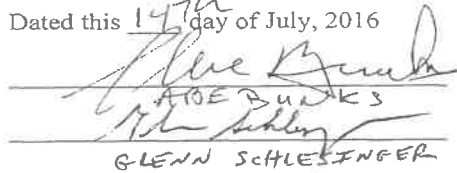 Dated this 14th day of July, 2016
ABE BUNKS
GLENN SCHLESINGER